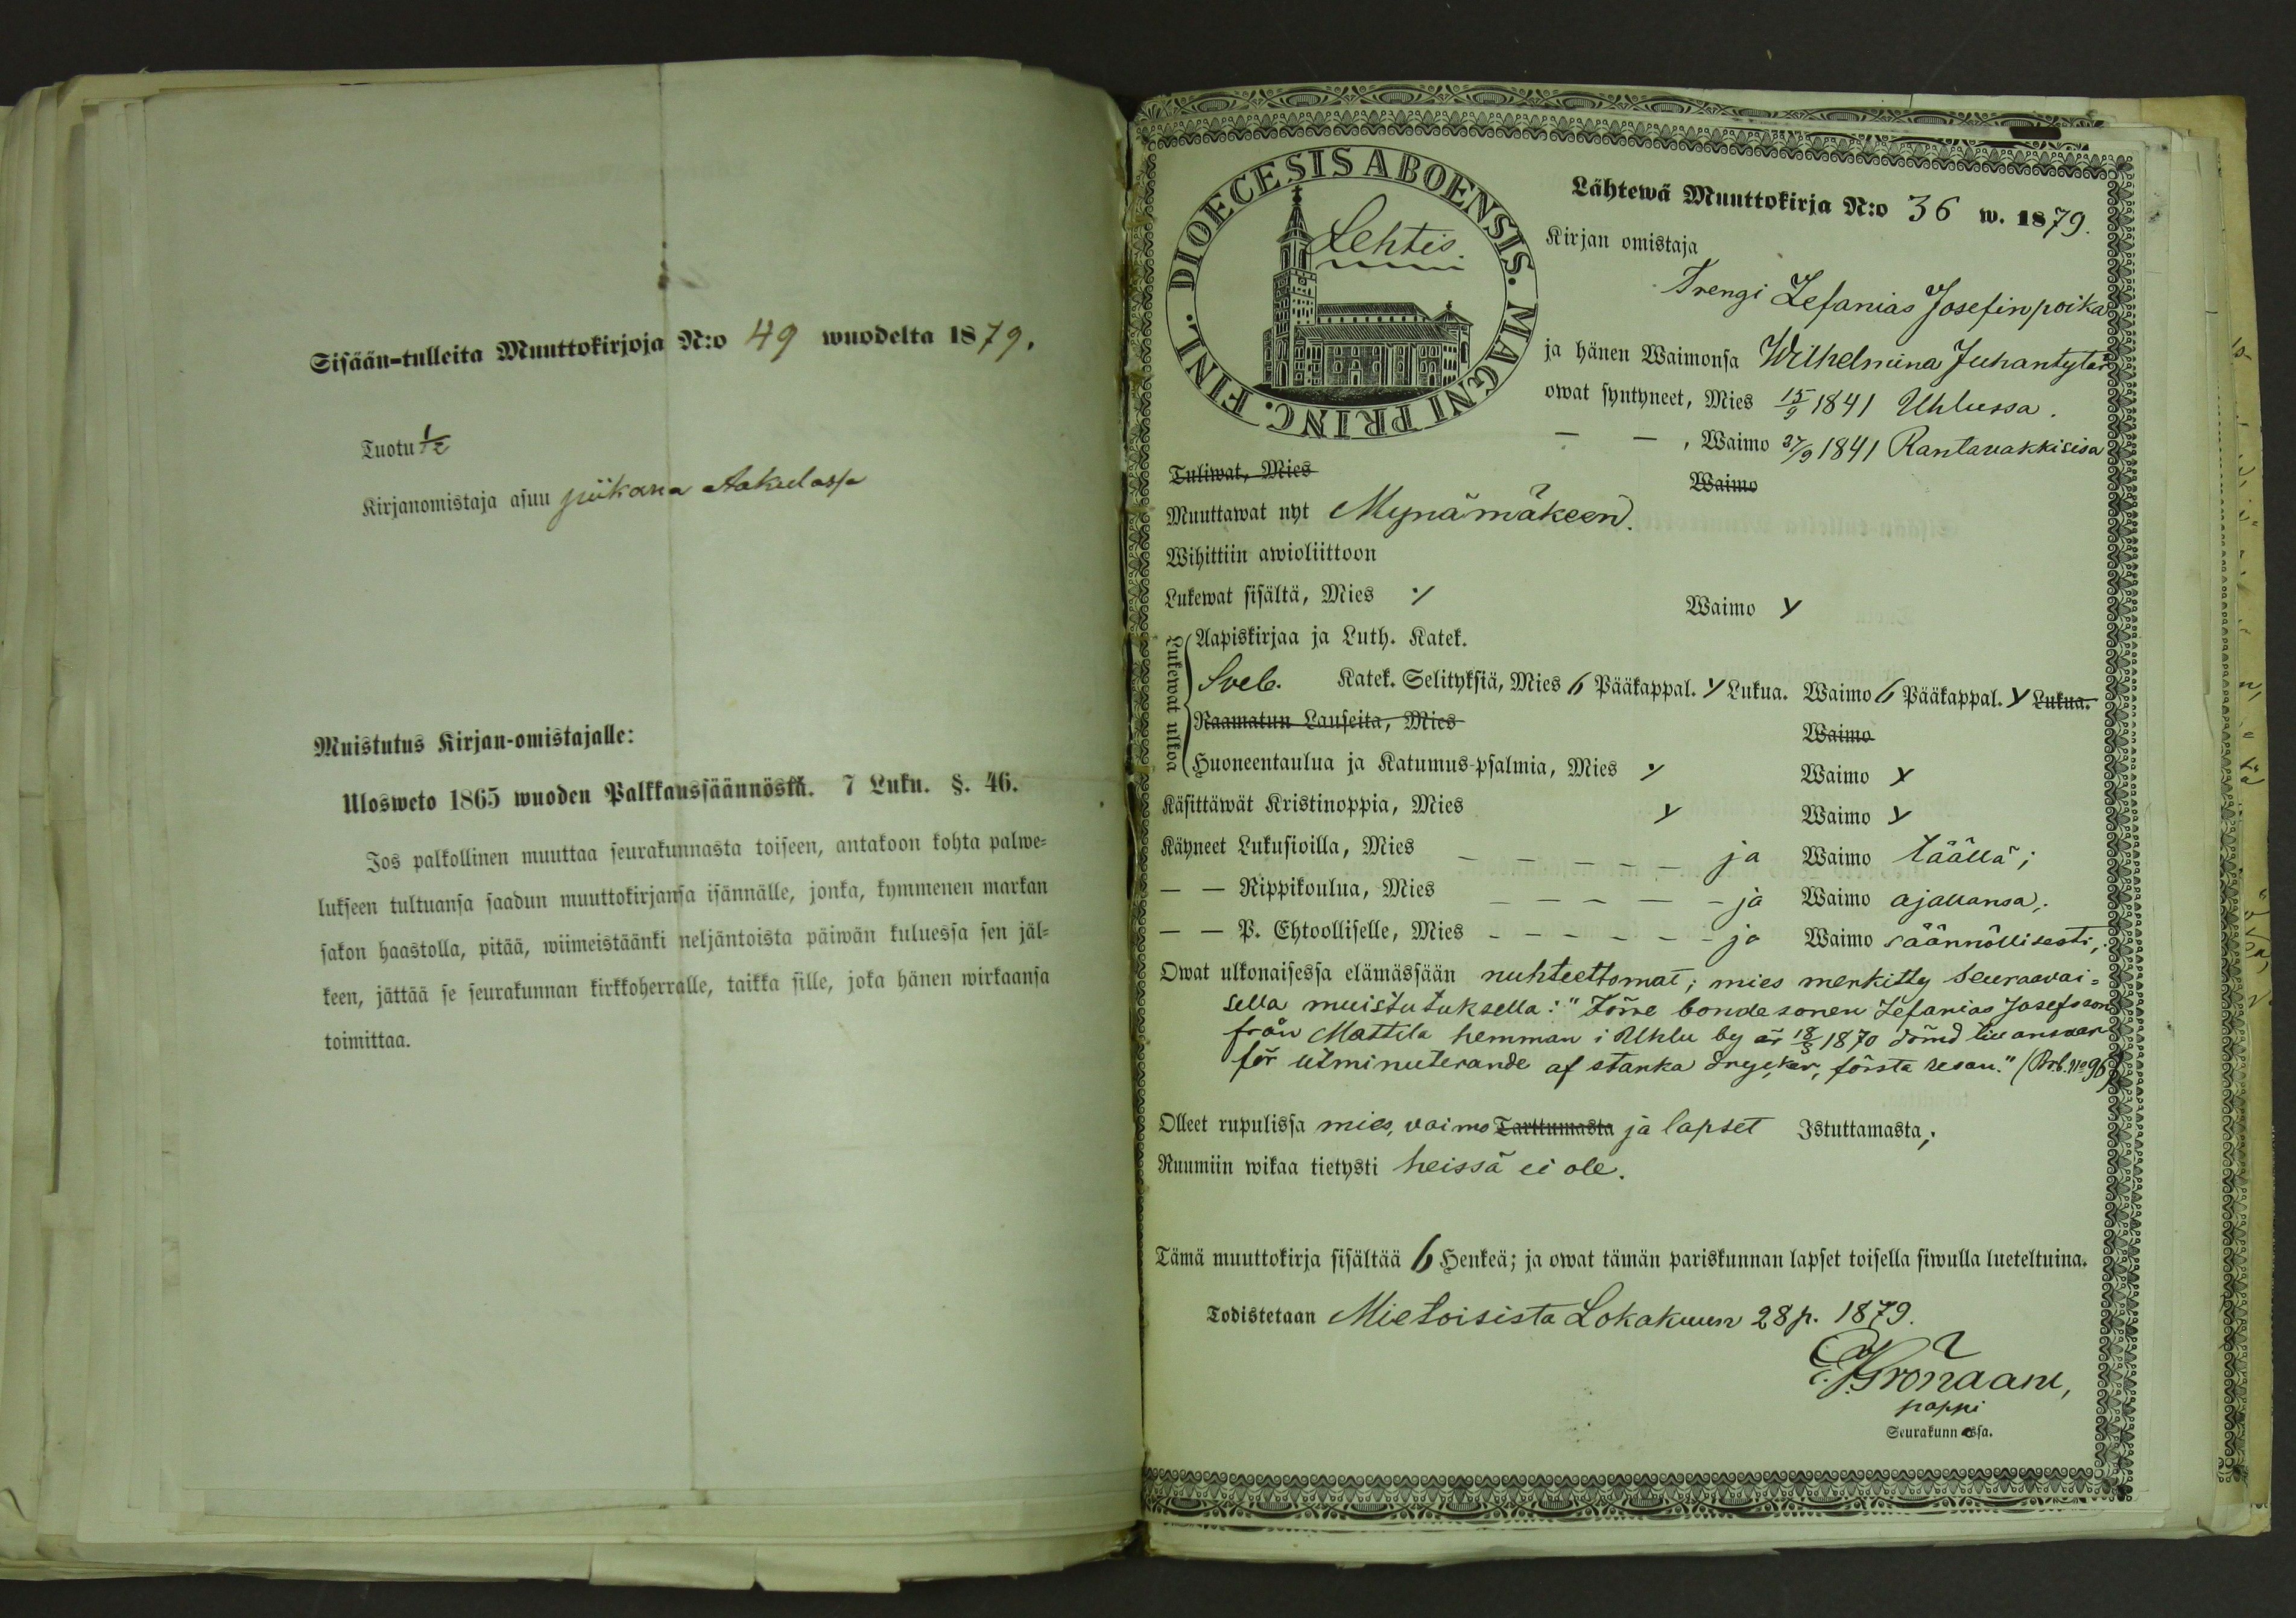 Sisään-tulleita Muuttokirjoja N:o 49 wuodelta 1879.
Tuotu 1/12
Kirjanomistaja asuu piikana Aakulassa
Muistutus Kirjan-omistajalle:
Ulosweto 1865 wuoden Palkkaussäännöstä. 7 Luku. §. 46.
Jos palkollinen muuttaa seurakunnasta toiseen, antakoon kohta palwe=
lukseen tultuansa saadun muuttokirjansa isännälle, jonka, kymmenen markan
sakon haastolla, pitää, wiimeistäänki neljäntoista päiwän kuluessa sen jäl=
keen, jättää se seurakunnan kirkkoherralle, taikka sille, joka hänen wirkaansa
toimittaa.
DIOECESIS ABOENSIS. MAGNI PRINC. FINL.
Lehtis.
Lähtewä Muuttokirja N:o 36 w. 1879.
Kirjan omistaja
Trengi Zefanias Josefinpoika
ja hänen Waimonsa Wilhelmina Juhantytär
owat syntyneet, Mies 15/9 1841 Uhlussa.
— — , Waimo 27/9 1841 Rantavakkisisa
Tuliwat, Mies Waimo
Muuttawat nyt Mynämäkeen.
Wihittiin awioliittoon
Lukewat sisältä, Mies y Waimo y
Lukewat ulkoa
Aapiskirjaa ja Luth. Katek.
Sveb. Katek. Selityksiä, Mies 6 Pääkappal. y Lukua. Waimo 6 Pääkappal. y Lukua.
Raamatun Lauseita, Mies Waimo
Huoneentaulua ja Katumus-psalmia, Mies y Waimo y
Käsittäwät Kristinoppia, Mies y Waimo y
Käyneet Lukusioilla, Mies — — — — — — ja Waimo täällä;
— — Rippikoulua, Mies — — — — — — ja Waimo ajallansa;
— — P. Ehtoolliselle, Mies — — — — — — ja Waimo säännöllisesti;
Owat ulkonaisessa elämässään nuhteettomat; mies merkitty seuraavai=
sella muistutuksella: "Förre bondesonen Zefanias Josefsson
från Mattila hemman i Uhlu by är 18/3 1870 dömd till ansvar
för utminuterande af starka drycker, första resan." (Br.b. No 96)
Olleet rupulissa mies, vaimo Tarttumasta ja lapset Istuttamasta;
Ruumiin wikaa tietysti heissä ei ole.
Tämä muuttokirja sisältää 6 Henkeä; ja owat tämän pariskunnan lapset toisella siwulla lueteltuina.
Todistetaan Mietoisista Lokakuun 28 p. 1879.
pappi
Seurakunnassa.